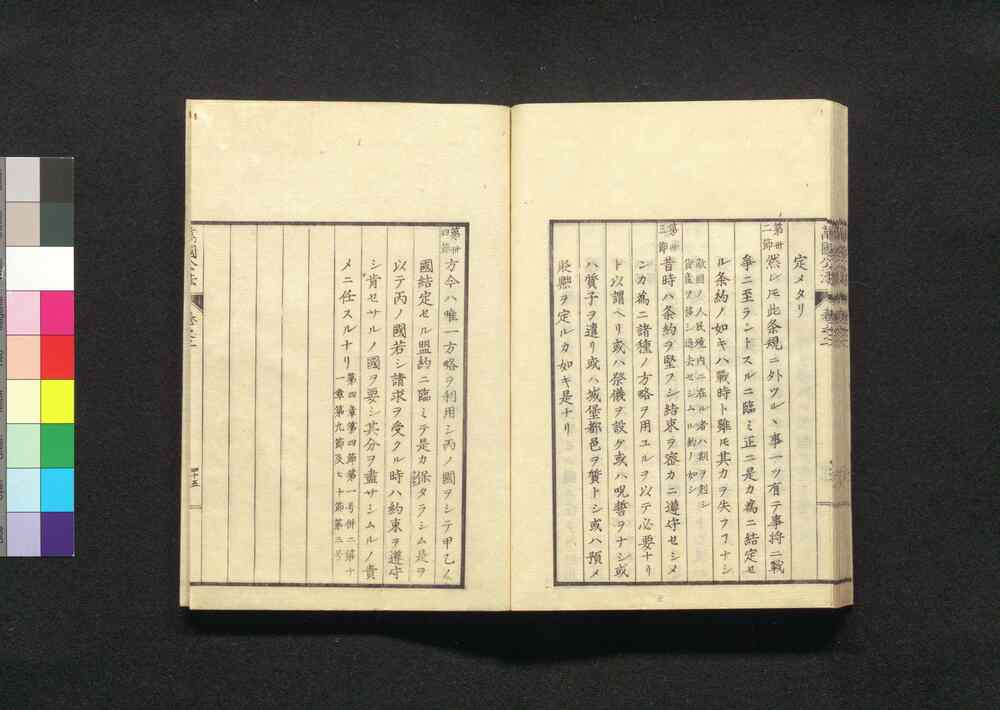 定メタリ
第卅二節
然レトモ此条規ニ外ツルヽ事一ツ有テ事将ニ戰
争ニ至ラントスルニ臨ミ正ニ是カ為ニ結定セ
ル条約ノ如キハ戰時ト雖モ其力ヲ失フ丁ナシ
敵國ノ人民境内ニ在ル者ハ期ヲ刻シ
貨産ヲ移シ退去セシムル約ノ如シ
第卅三節
昔時ハ条約ヲ堅フシ結求ヲ密カニ遵守セシメ
ンカ為ニ諸種ノ方略ヲ用ユルヲ以テ必要ナリ
ト以謂ヘリ或ハ祭儀ヲ設ケ或ハ呪誓ヲナシ或
ハ質子ヲ遣リ或ハ城堡都邑ヲ質トシ或ハ預メ
貶黜ヲ定ルカ如キ是ナリ
第卅四節
方今ハ唯一方略ヲ利用シ丙ノ國ヲシテ甲乙ノ
國結定セル盟約ニ臨ミテ是カ保タラシム是ヲ
以テ丙ノ國若シ請求ヲ受クル時ハ約束ヲ遵守
シ肯セサルノ國ヲ要シ其分ヲ盡サシムルノ責
メニ任スルナリ
第四章第四節第一号併ニ第十
一章第九節及ヒ十節第二号
萬國公法
巻之二
四十五